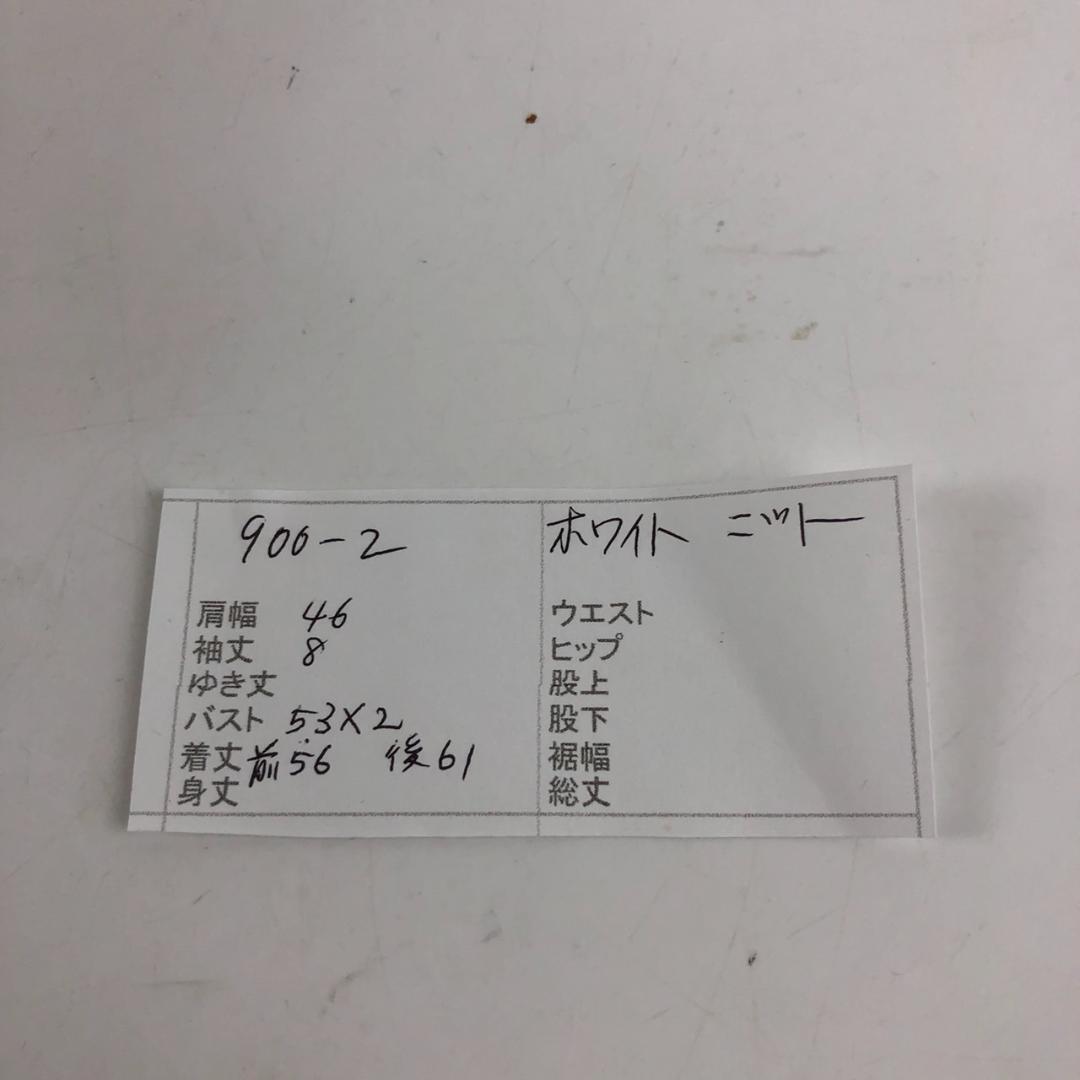 900-2
ホワイト ニット
肩幅 46
袖丈 8
ゆき丈
バスト 53×2
着丈 前56 後61
身丈
ウエスト
ヒップ
股上
股下
裾幅
総丈